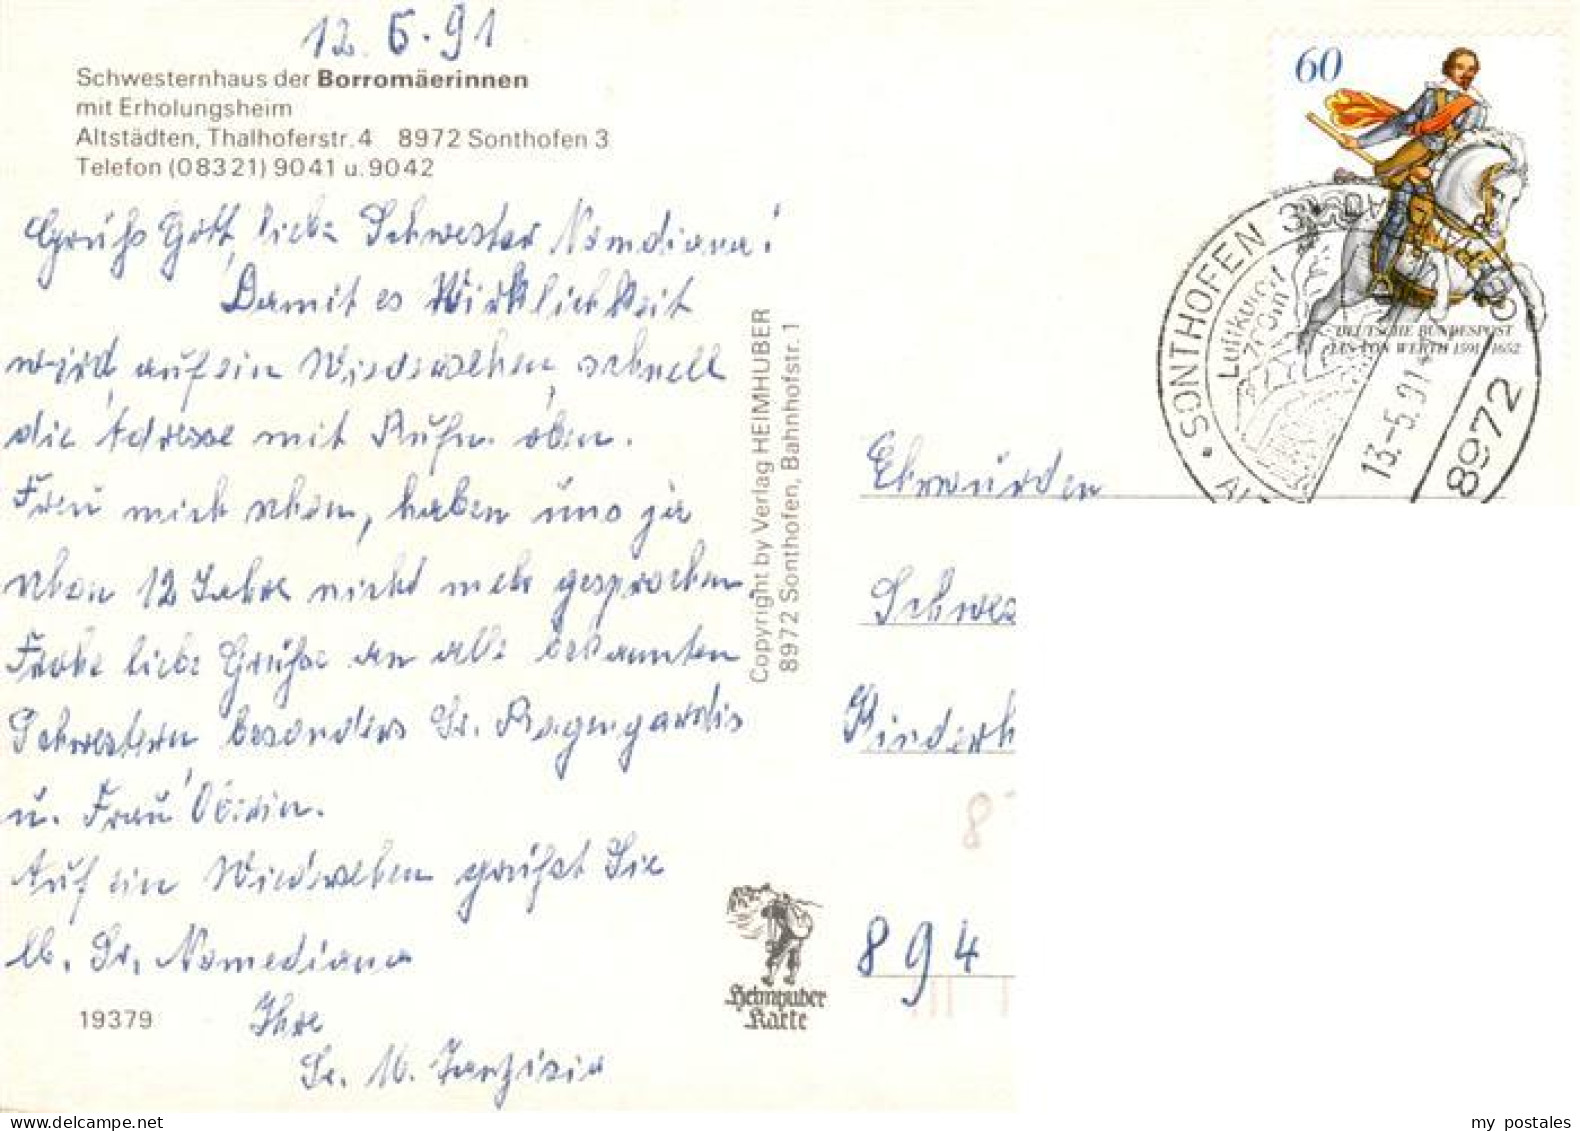 12.5.91
Schwesternhaus der Borromäerinnen
mit Erholungsheim
Altstädten, Thalhoferstr. 4 8972 Sonthofen 3
Telefon (08321) 9041 u. 9042
Grüß Gott, liebe Schwester Nomediana!
Damit es Wirklichkeit
wird auf ein Wiedersehen, schnell
die Adresse mit Rufn. oben.
Freu mich schon, haben uns ja
schon 12 Jahre nicht mehr gesprochen.
Frohe liebe Grüße an alle bekannten
Schwestern besonders Sr. Ragengardis
u. Frau
Auf ein Wiedersehen grüßt Sie
lb. Sr. Nomediana
Ihre
Sr. M.
19379
Copyright by Verlag HEIMHUBER
8972 Sonthofen, Bahnhofstr. 1
Heimhuber
Karte
60
DEUTSCHE BUNDESPOST
JAN VON WERTH 1591-1652
SONTHOFEN 3
Luftkurort
13.-5.91
8972
Ehrwürden
Schwes
Kinderh
894
my postales